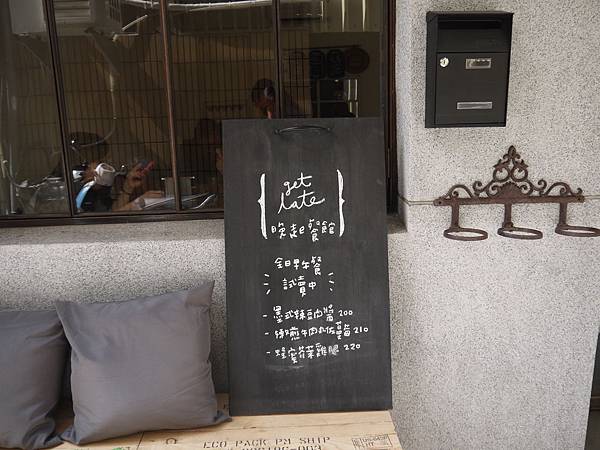 get
late
晚起餐館
全日早午餐
試賣中
- 墨式辣豆肉醬 200
- 牛肉丸佐蔓莓 210
- 蜂蜜芥菜雞腿 220
ECO PACK PM SHIP